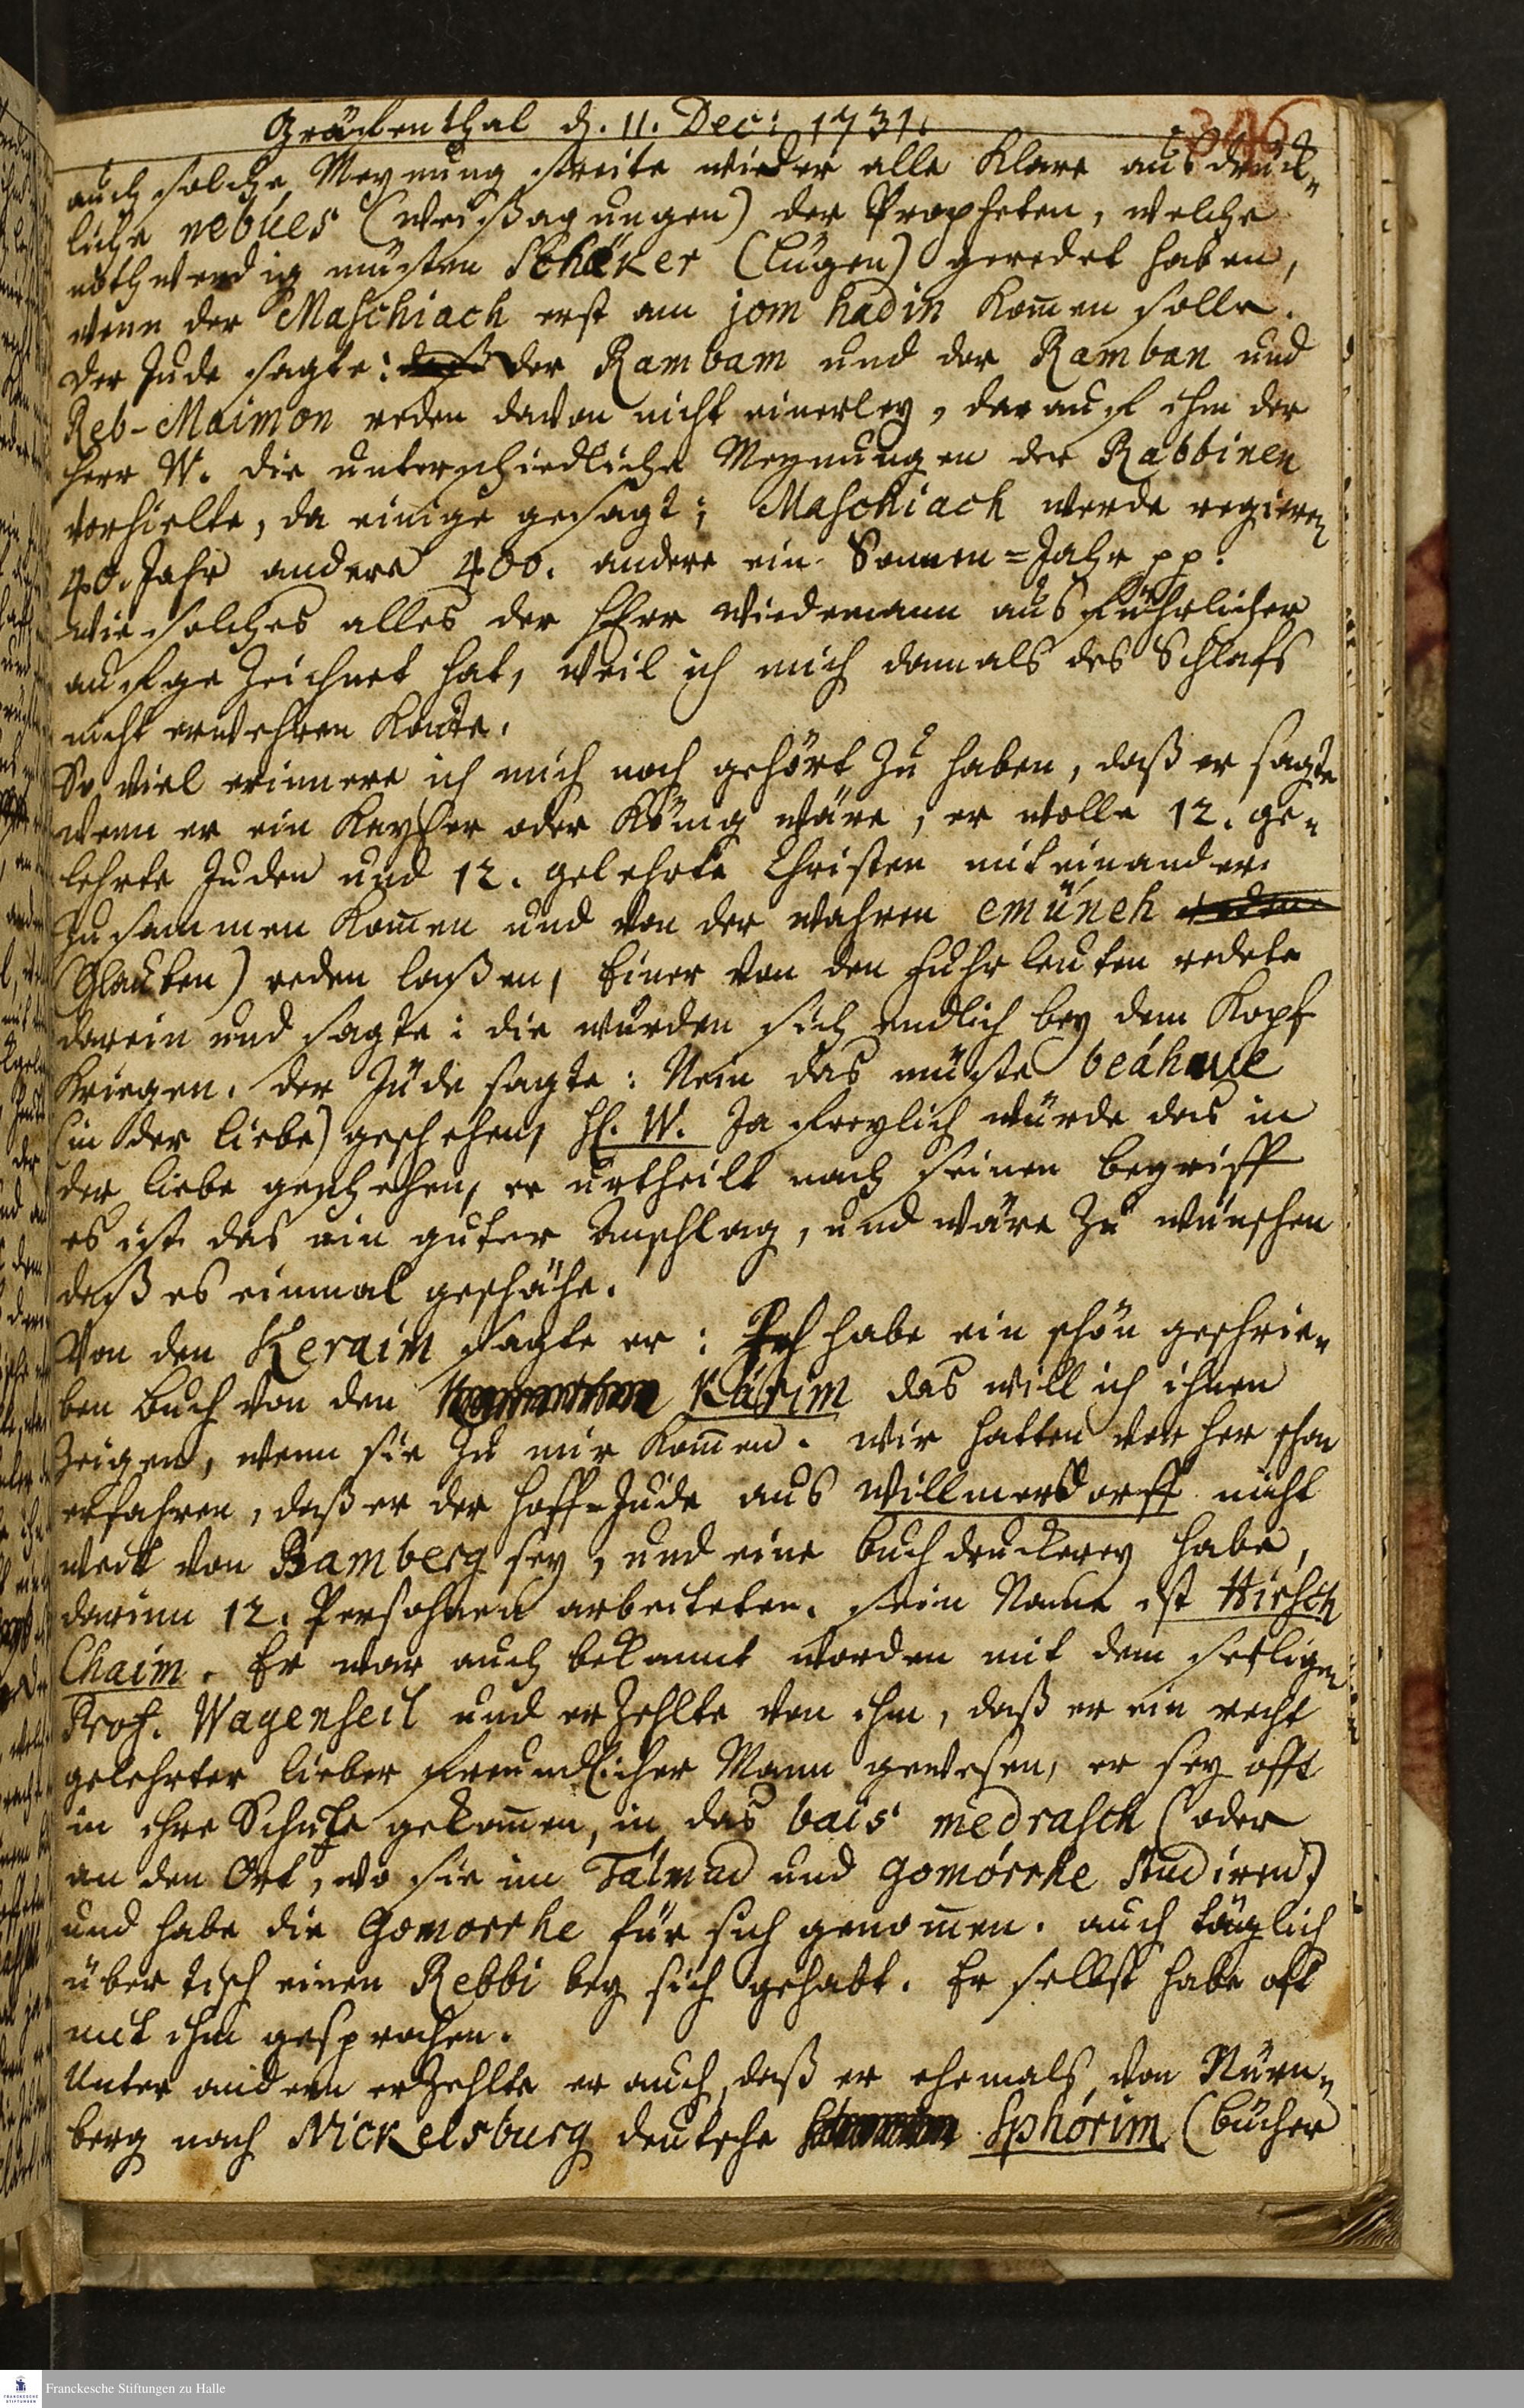 Gräfenthal d. 11. Dec: 1731.
346
auch solche Meynung streite wieder alle klare ausdrück-
liche nebúes (Weißagungen) der Propheten, welche
nothwendig müsten Schäker (Lügen) geredet haben,
wenn der Maschiach erst am jom hadin kom̄en solle.
Der Jude sagte: daß der Rambam und der Ramban und
Reb-Maimon reden davon nicht einerley, darauf ihm der
Herr W. die unterschiedliche Meynungen der Rabbinen
vorhielte, da einige gesagt; Maschiach werde regieren
40. Jahr andere 400. andere ein Sonnen=Jahr pp.
wie solches alles der Herr Wiedemann ausführlicher
aufgezeichnet hat, weil ich mich damals des Schlafs
nicht erwehren konte.
So viel erinnere ich mich noch gehört zu haben, daß er sagte
wenn er ein Keyser oder König wäre, er wolle 12. ge-
lehrte Juden und 12. gelehrte Christen miteinander
zusammen kom̄en und von der wahren emúneh reden
(Glauben) reden laßen, Einer von den Fuhrleuten redete
darein und sagte: die würden sich endlich bey dem Kopf
kriegen. Der Jude sagte: Nein das müste beáhave
(in der Liebe) geschehen, H. W. Ja freylich würde das in
der Liebe geschehen, er urtheilt nach seinen Begriff
es ist das ein guter Anschlag, und wäre zu wünschen
daß es einmal geschähe.
Von den Keraim sagte er: Ich habe ein schön geschrie-
ben Buch von den Kárim das will ich ihnen
zeigen, wenn sie zu mir kom̄en. Wir hatten vorher schon
erfahren, daß er der Hoff-Jude aus Willmersdorff nicht
weit von Bamberg sey, und eine Buchdruckerey habe,
darinn 12. Persohnen arbeiteten. sein Name ist Hirsch
Chaim. Er war auch bekannt worden mit dem seeligen
Prof. Wagenseil und erzehlte von ihm, daß er ein recht
gelehrter lieber freundlicher Mann gewesen, er sey offt
in ihre Schule gekom̄en, in das bais medrasch (oder
an den Ort, wo sie im Tálmud und Gomórrhe studiren)
und habe die Gomorrhe für sich genom̄en. auch täglich
über Tisch einen Rebbi bey sich gehabt. Er selbst habe oft
mit ihm gesprochen.
Unter andern erzehlte er auch, daß er ehemals von Nürn-
berg nach Nickelsburg deutsche Sphórim (Bücher
Franckesche Stiftungen zu Halle